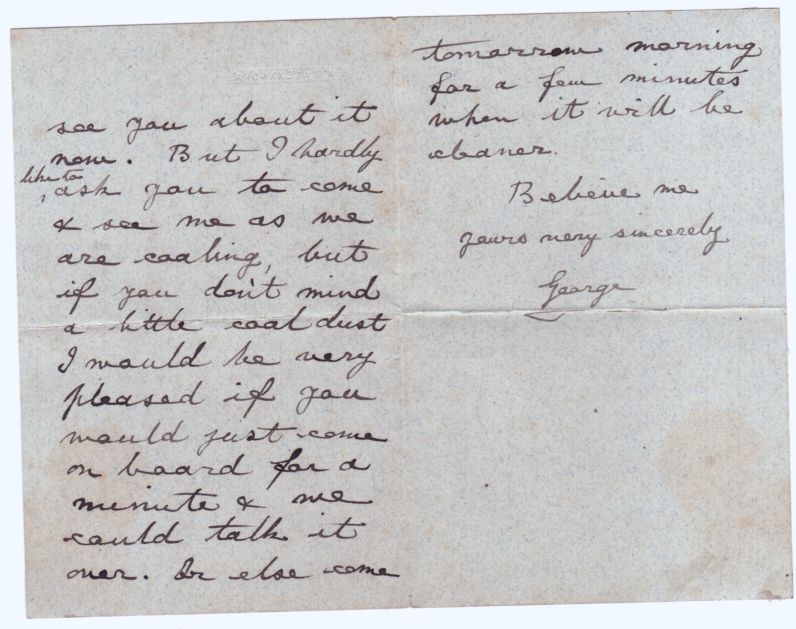 see you about it
now. But I hardly
like to
ask you to come
& see me as we
are coaling, but
if you don't mind
a little coal dust
I would be very
pleased if you
would just come
on board for a
minute & we
could talk it
over. Or else come
tomorrow morning
for a few minutes
when it will be
cleaner.
Believe me
yours very sincerely
George